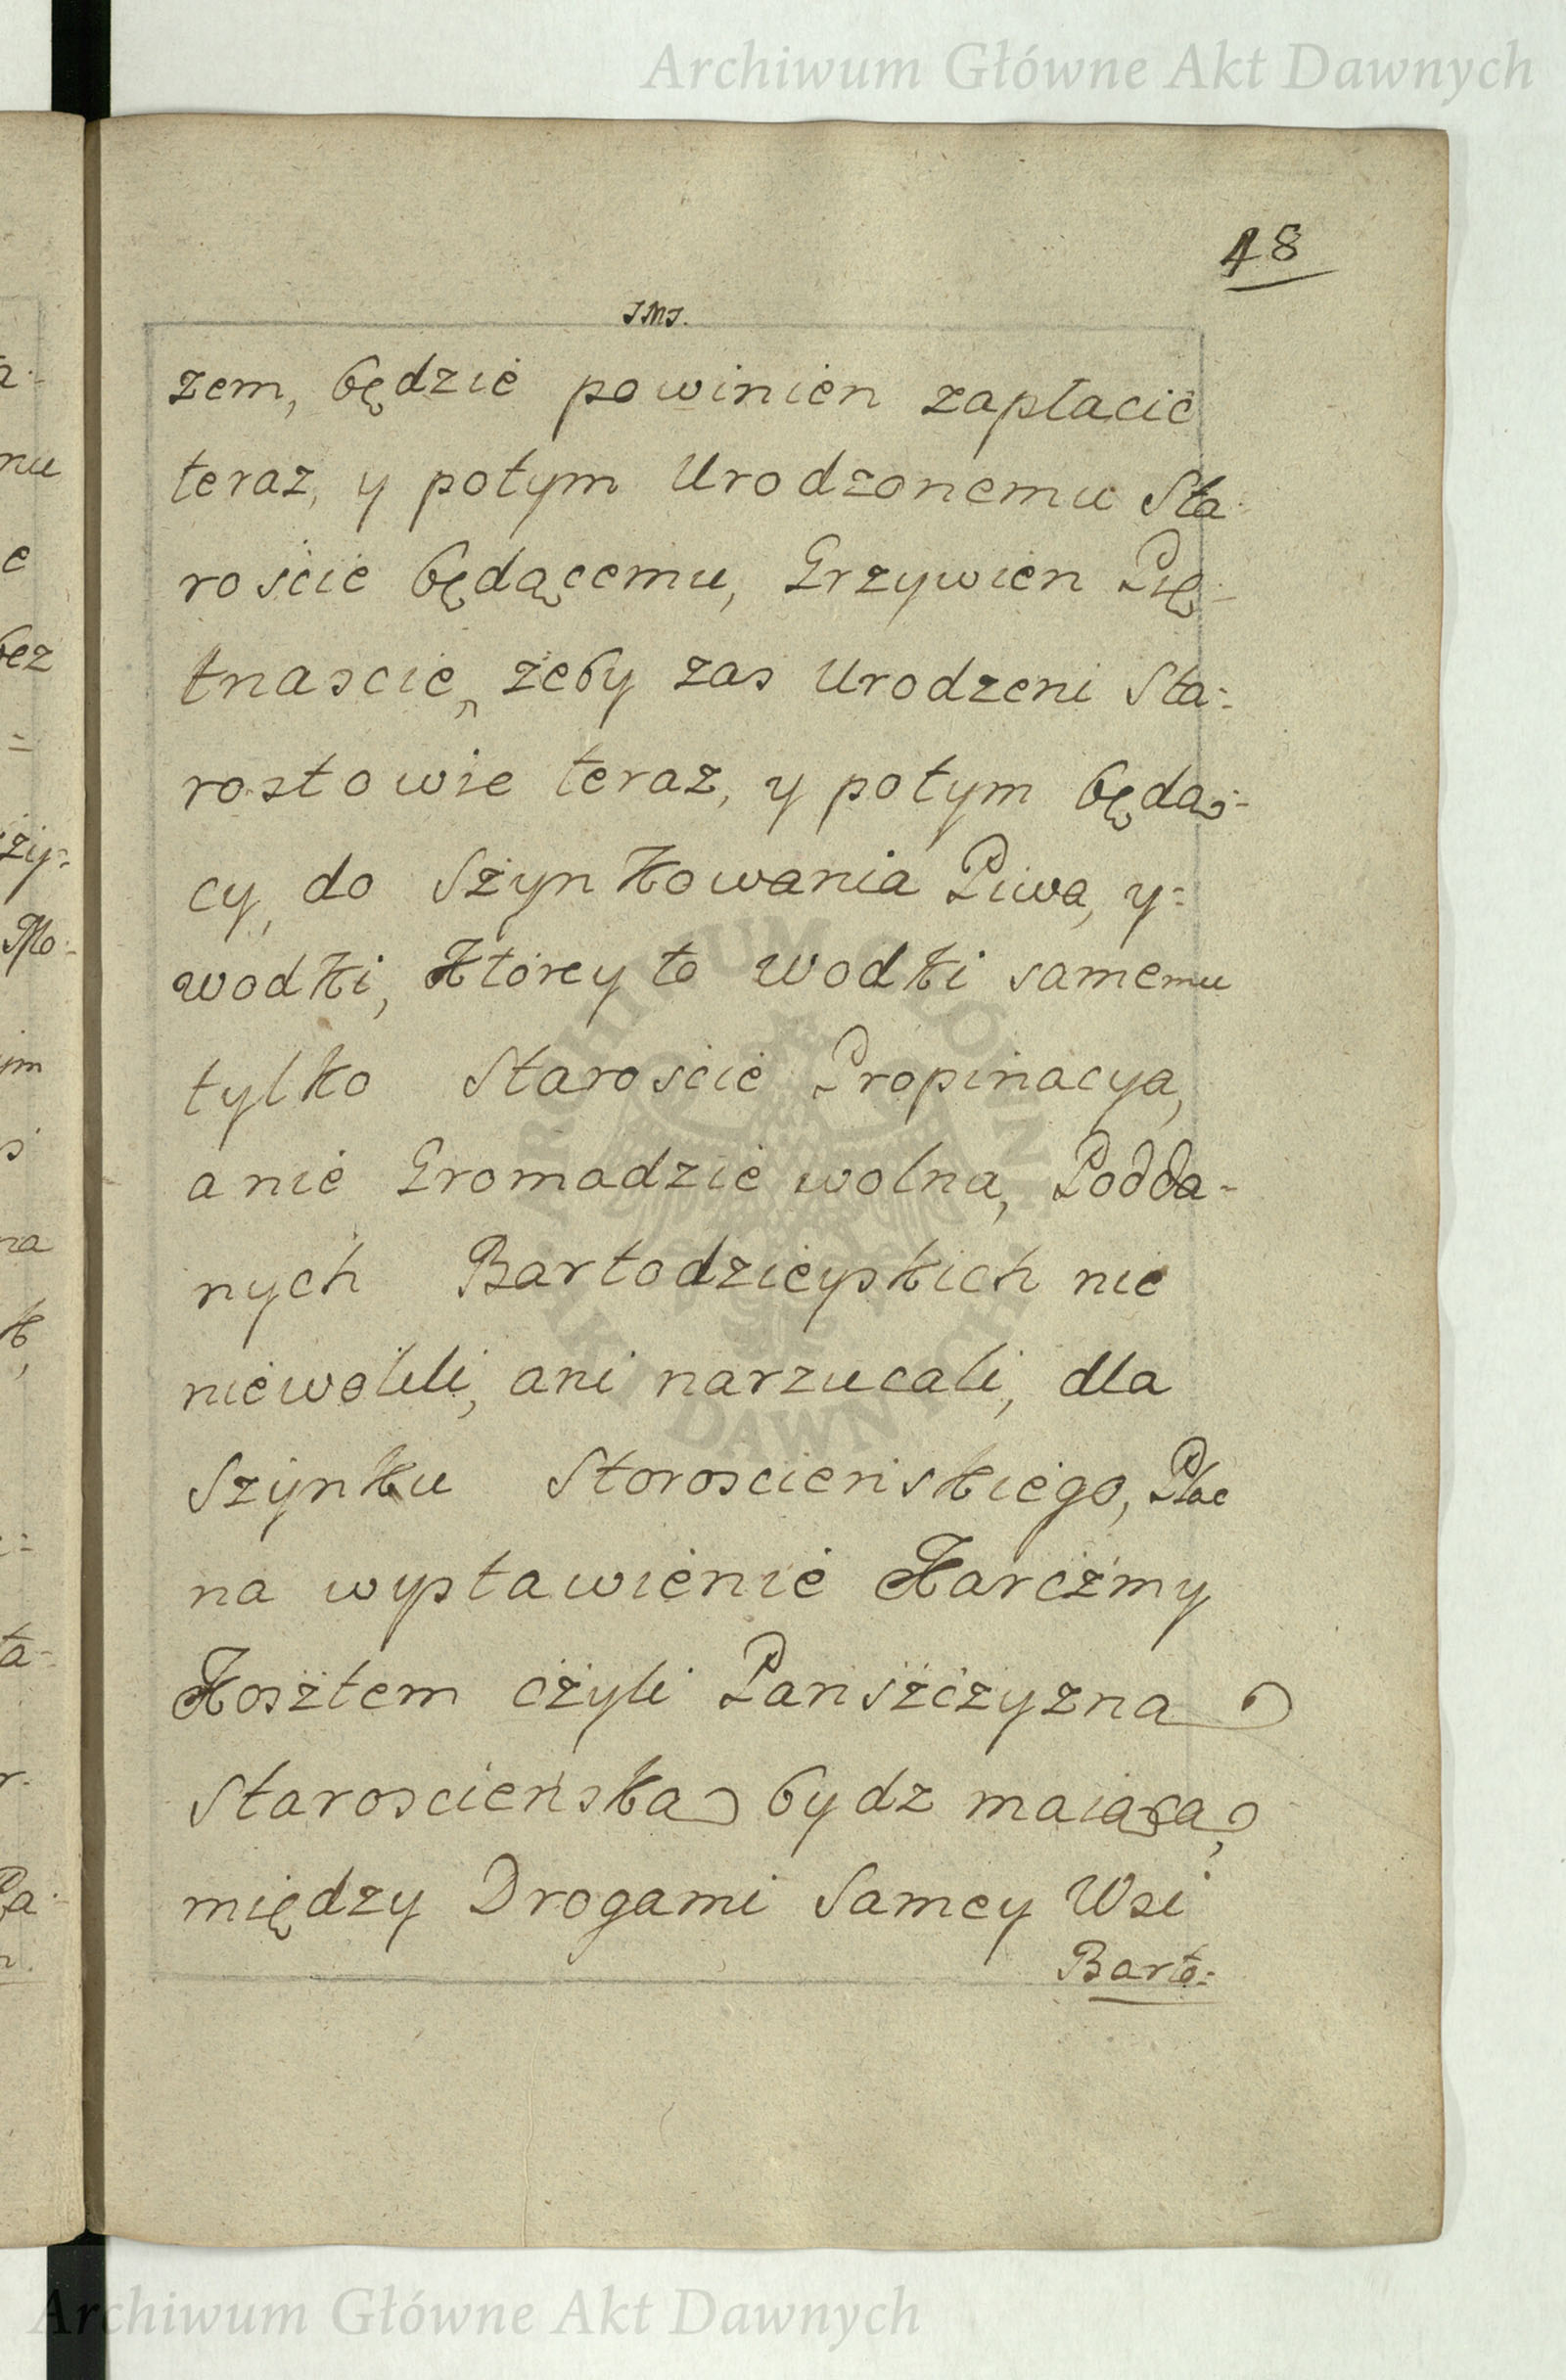 Archiwum Główne Akt Dawnych
48
JMJ.
zem, będzie powinien zapłacić
teraz, y potym Urodzonemu Sta-
rościе będącemu, Grzywien Pię-
tnascie, żeby zas Urodzeni Sta-
rostowie teraz, y potym będą-
cy, do Szynkowania Piwa, y-
wodki, ktorey to wodki samemu
tylko Staroście Propinacya,
a nie Gromadzie wolna, Podda-
nych Bartodzieyskich nie
niewolili, ani narzucali, dla
Szynku Storoscieńskiego, Plac
na wystawienie Karczmy
Kosztem czyli Pańszczyzną
Staroscieńską bydz maiącą,
między Drogami Samey Wsi
Barto-
Archiwum Główne Akt Dawnych
ARCHIWUM GŁÓWNE AKT DAWNYCH